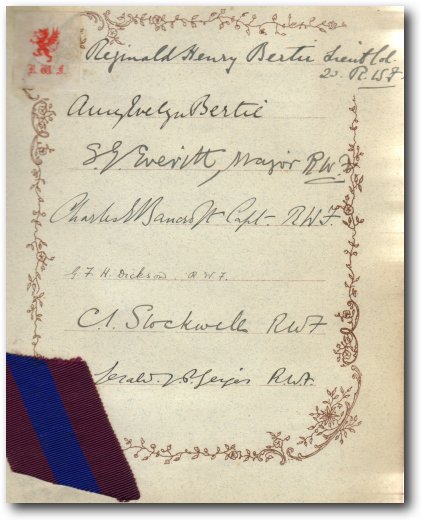 Reginald Henry Bertie Lieut Col.
2. R.W.F.
R.W.F.
Amy Evelyn Bertie
Everitt, Major R.W.F.
Charles E Bancroft Capt. R.W.F.
G. F. H. Dickson. R.W.F.
C. I. Stockwell RWF
Gerald R.W.F.